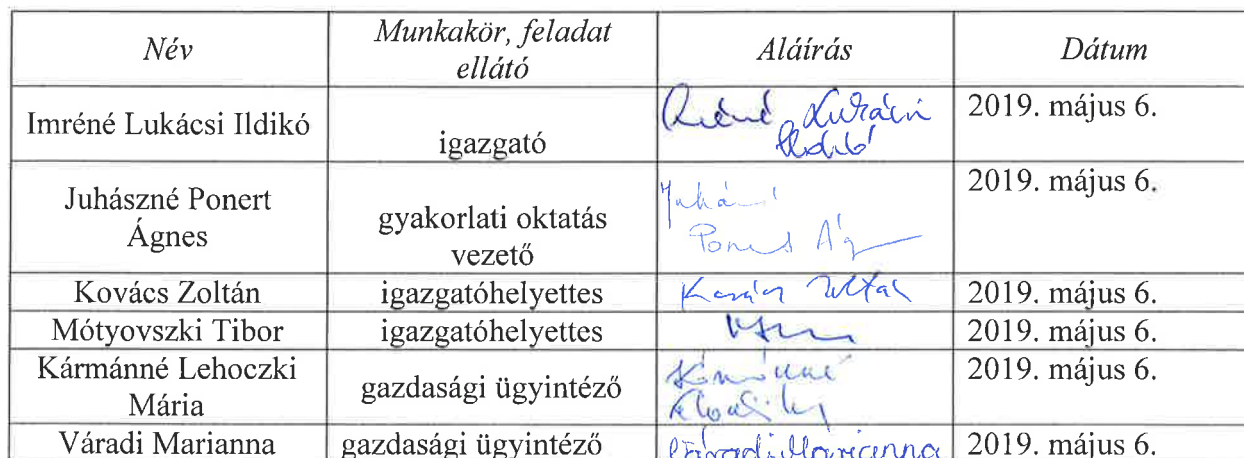 Név
Munkakör, feladat
ellátó
Aláírás
Dátum
Imréné Lukácsi Ildikó
igazgató
Lukácsi
Ildikó
2019. május 6.
Juhászné Ponert
Ágnes
gyakorlati oktatás
vezető
Juhászné
Ponert Ág
2019. május 6.
Kovács Zoltán
igazgatóhelyettes
Kovács Zoltán
2019. május 6.
Mótyovszki Tibor
igazgatóhelyettes
2019. május 6.
Kármánné Lehoczki
Mária
gazdasági ügyintéző
Kármánné
2019. május 6.
Váradi Marianna
gazdasági ügyintéző
Váradi Marianna
2019. május 6.